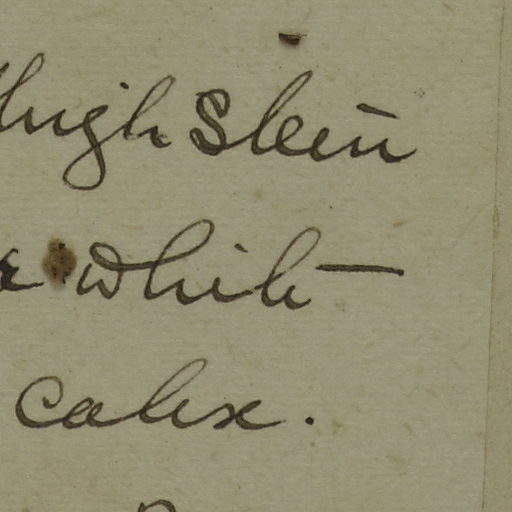 high Stem
white
calex.